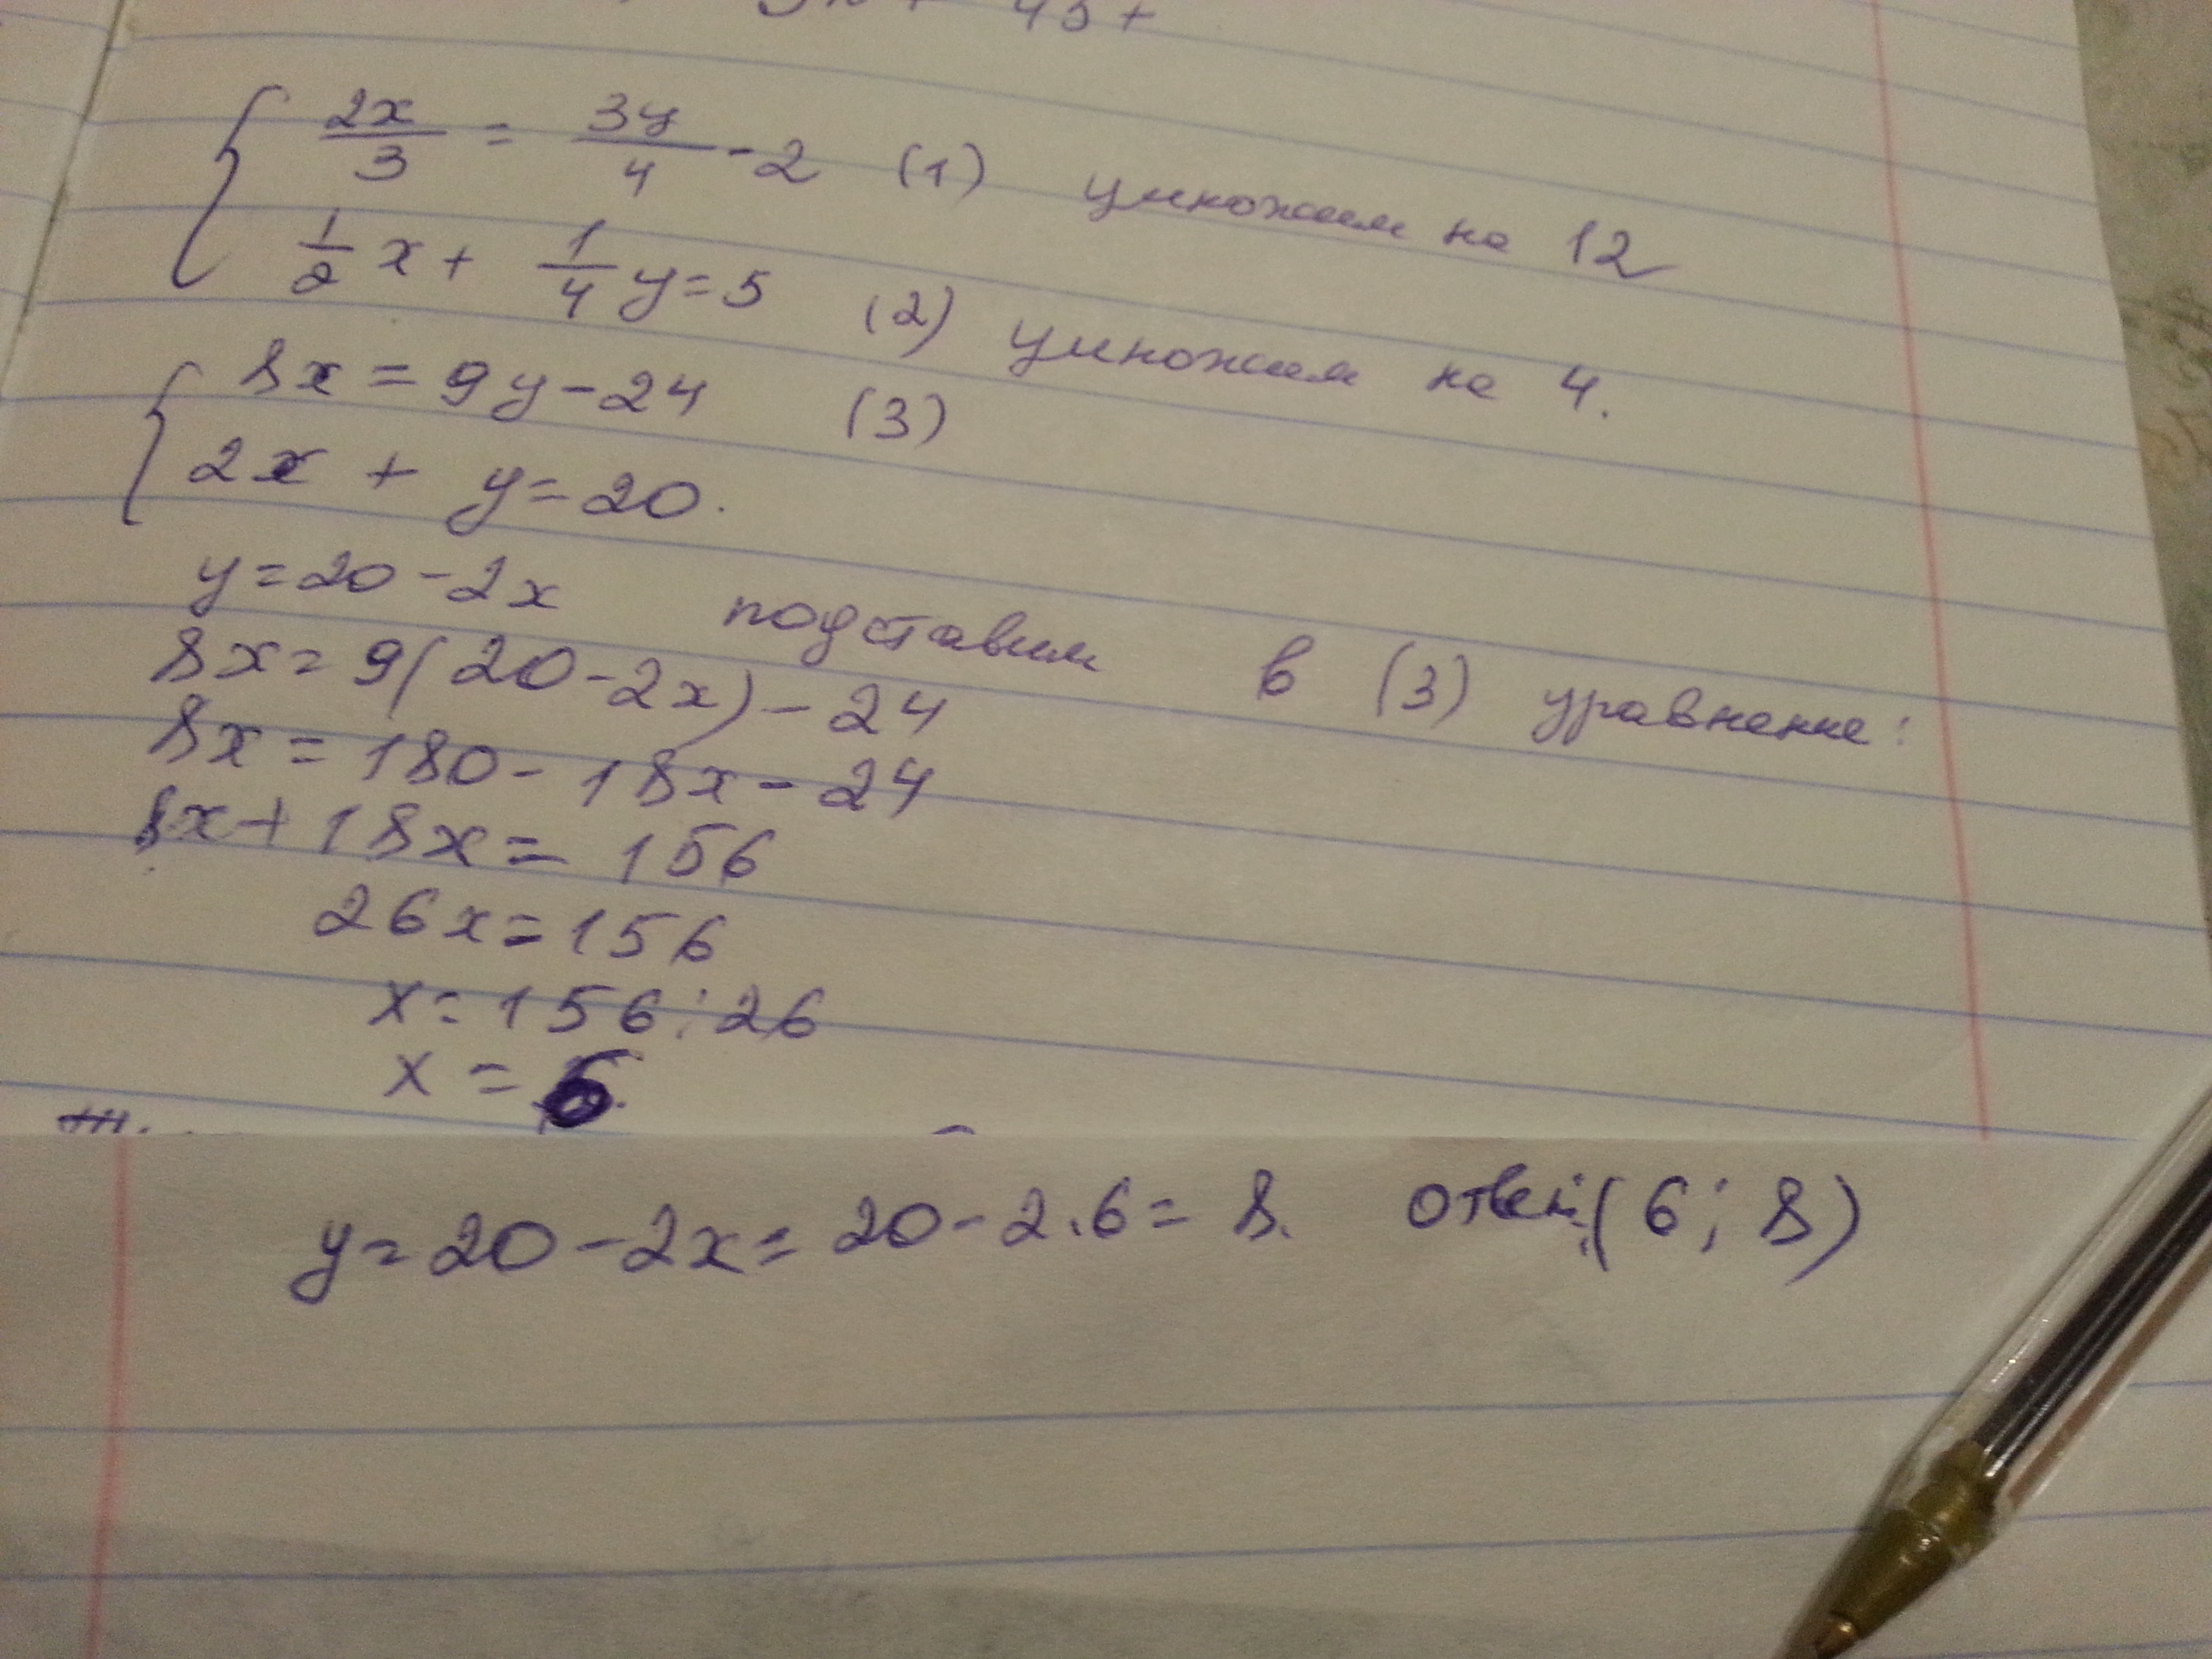 2x/3 = 3y/4 - 2 (1) умножим на 12
1/2 x + 1/4 y = 5 (2) умножим на 4.
8x = 9y - 24 (3)
2x + y = 20.
y = 20 - 2x подставим в (3) уравнение:
8x = 9(20 - 2x) - 24
8x = 180 - 18x - 24
8x + 18x = 156
26x = 156
x = 156 : 26
x = 6.
y = 20 - 2x = 20 - 2 . 6 = 8. ответ: (6 ; 8)